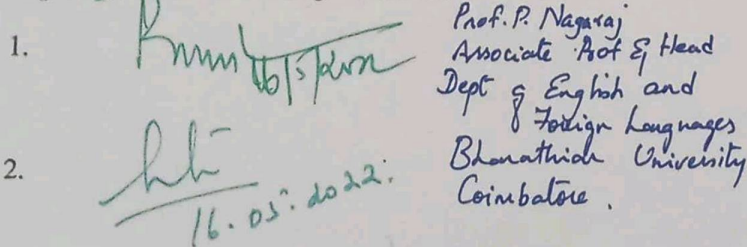 1.
16/5/2022
Prof. P. Nagaraj
Associate Prof & Head
Dept of English and
Foreign Languages
Bharathiar University
Coimbatore.
2.
16.05.2022.